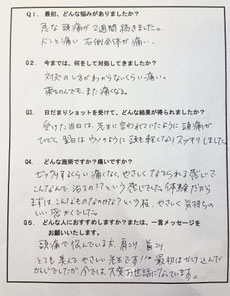 Q1. 最初、どんな悩みがありましたか?
急な頭痛が2週間続きました。
ドーンと痛い 右側全体が痛い。
Q2. 今までは、何をして対処してきましたか?
対処の仕方がわからないくらい痛い。
薬ものんでも、また痛くなる。
Q3. 日だまりショットを受けて、どんな結果が得られましたか?
受けた当日は、先生に言われていたように頭痛が
ひどく、翌日はウソのように頭も軽くなりスッキリしました。
Q4. どんな施術ですか?痛いですか?
ビックリするくらい痛くなく、やさしくなでられる感じで
こんなんで、治るの?!という感じでした(体験だから
まずは、こんなものなのかな?という程、やさしく気持ちの
いい感かくでした。
Q5. どんな人におすすめしますか?または、一言メッセージを
お願いいたします。
頭痛で悩んでいる方、肩こり 首こり
とても 楽んで やさしい 先生です!! 最初はかけ込んだ
かんじでしたが、今では、大変お世話になっています。